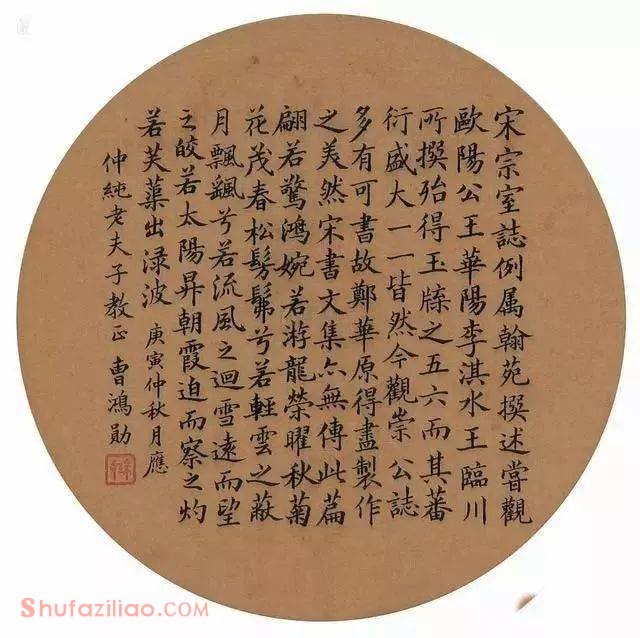 宋宗室誌例属翰苑撰述嘗觀
歐陽公王華陽李淇水王臨川
所撰殆得玉牒之五六而其蕃
衍盛大一一皆然今觀崇公誌
多有可書故鄭華原得盡製作
之美然宋書文集亦無傳此篇
翩若驚鴻婉若游龍榮曜秋菊
花茂春松髣髴兮若輕雲之蔽
月飄颻兮若流風之迴雪遠而望
之皎若太陽昇朝霞迫而察之灼
若芙蕖出渌波 庚寅仲秋月應
仲純老夫子教正 曹鴻勛
Shufaziliao.COM